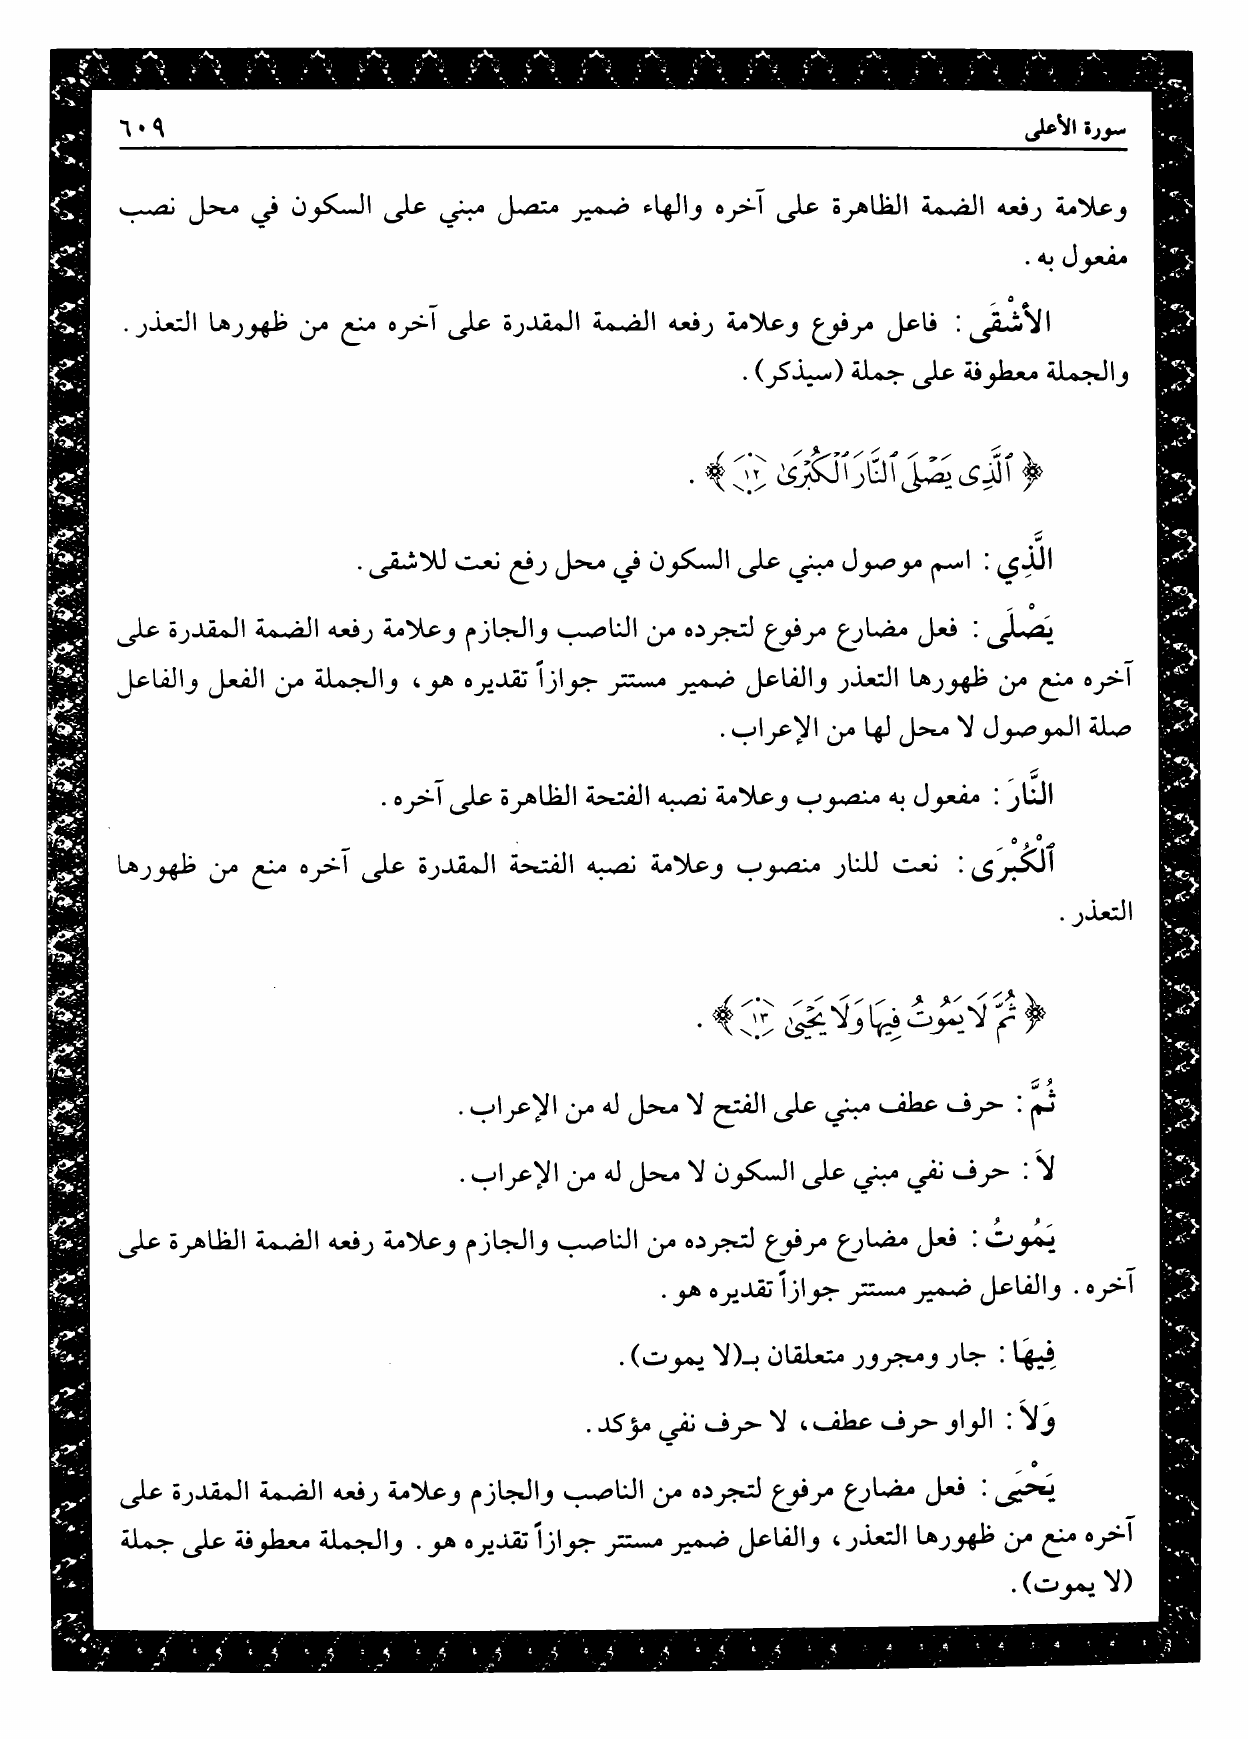 سورة الأعلى ٦٠٩
وعلامة رفعه الضمة الظاهرة على آخره والهاء ضمير متصل مبني على السكون في محل نصب
مفعول به .
الأَشْقَى : فاعل مرفوع وعلامة رفعه الضمة المقدرة على آخره منع من ظهورها التعذر .
والجملة معطوفة على جملة (سيذكر) .
﴿ ٱلَّذِى يَصْلَى ٱلنَّارَ ٱلْكُبْرَىٰ ١٢ ﴾ .
الَّذِي : اسم موصول مبني على السكون في محل رفع نعت للاشقى .
يَصْلَى : فعل مضارع مرفوع لتجرده من الناصب والجازم وعلامة رفعه الضمة المقدرة على
آخره منع من ظهورها التعذر والفاعل ضمير مستتر جوازاً تقديره هو ، والجملة من الفعل والفاعل
صلة الموصول لا محل لها من الإعراب .
النَّارَ : مفعول به منصوب وعلامة نصبه الفتحة الظاهرة على آخره .
ٱلْكُبْرَى : نعت للنار منصوب وعلامة نصبه الفتحة المقدرة على آخره منع من ظهورها
التعذر .
﴿ ثُمَّ لَا يَمُوتُ فِيهَا وَلَا يَحْيَىٰ ١٣ ﴾ .
ثُمَّ : حرف عطف مبني على الفتح لا محل له من الإعراب .
لَا : حرف نفي مبني على السكون لا محل له من الإعراب .
يَمُوتُ : فعل مضارع مرفوع لتجرده من الناصب والجازم وعلامة رفعه الضمة الظاهرة على
آخره . والفاعل ضمير مستتر جوازاً تقديره هو .
فِيهَا : جار ومجرور متعلقان بـ(لا يموت) .
وَلَا : الواو حرف عطف ، لا حرف نفي مؤكد .
يَحْيَى : فعل مضارع مرفوع لتجرده من الناصب والجازم وعلامة رفعه الضمة المقدرة على
آخره منع من ظهورها التعذر ، والفاعل ضمير مستتر جوازاً تقديره هو . والجملة معطوفة على جملة
(لا يموت) .